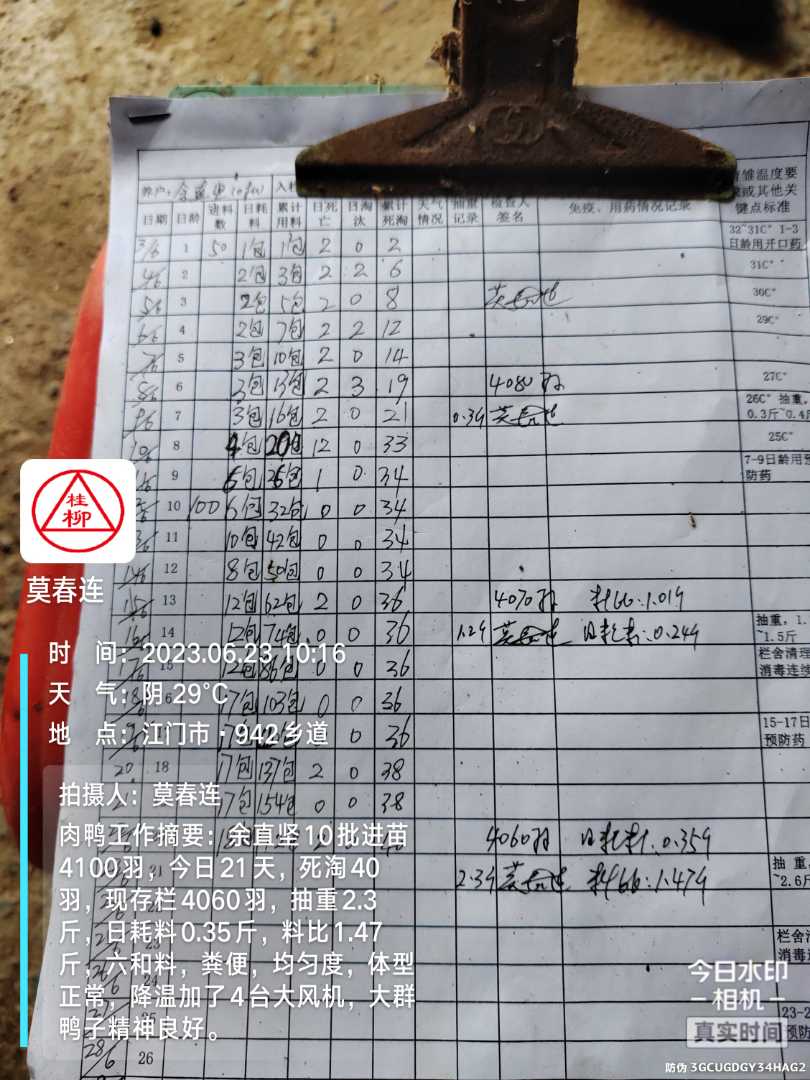 养户: 入
日期 日龄 进料数 日耗料 累计用料 日死亡 日淘汰 累计死淘 天气情况 抽重记录 检查人签名 免疫、用药情况记录 雏温度要 或其他关键点标准
3/6 1 50 1包 1包 2 0 2 32~31C° 1-3日龄用开口药
4/6 2 2包 3包 2 2 6 31C°
5/6 3 2包 5包 2 0 8 30C°
6/6 4 2包 7包 2 2 12 29C°
7/6 5 3包 10包 2 0 14
8/6 6 3包 13包 2 3 19 4080羽 27C°
9/6 7 3包 16包 2 0 21 0.39 26C° 抽重, 0.3斤~0.4
8 4包 20包 12 0 33 25C°
9 6包 26包 1 0 34 7-9日龄用预防药
10 100 6包 32包 0 0 34
11 10包 42包 0 0 34
12 8包 50包 0 0 34
13 12包 62包 2 0 36 4070羽 料比:1.019
14 12包 74包 0 0 36 1.29 日耗料:0.249 抽重, 1. ~1.5斤
15 12包 86包 0 0 36 栏舍清理 消毒连续
17包 103包 0 0 36
17包 0 36 15-17日 预防药
20 18 17包 137包 2 0 38
17包 154包 0 0 38
4060羽 日耗料:0.359
21 2.39 料比:1.479 抽重, ~2.6斤
栏舍清 消毒
23-2 预防
28/6 26
桂柳
莫春连
时 间:2023.06.23 10:16
天 气:阴 29℃
地 点:江门市·942乡道
拍摄人:莫春连
肉鸭工作摘要:余直坚10批进苗
4100羽,今日21天,死淘40
羽,现存栏4060羽,抽重2.3
斤,日耗料0.35斤,料比1.47
斤,六和料,粪便,均匀度,体型
正常,降温加了4台大风机,大群
鸭子精神良好。
今日水印
相机
真实时间
防伪 3GCUGDGY34HAG2